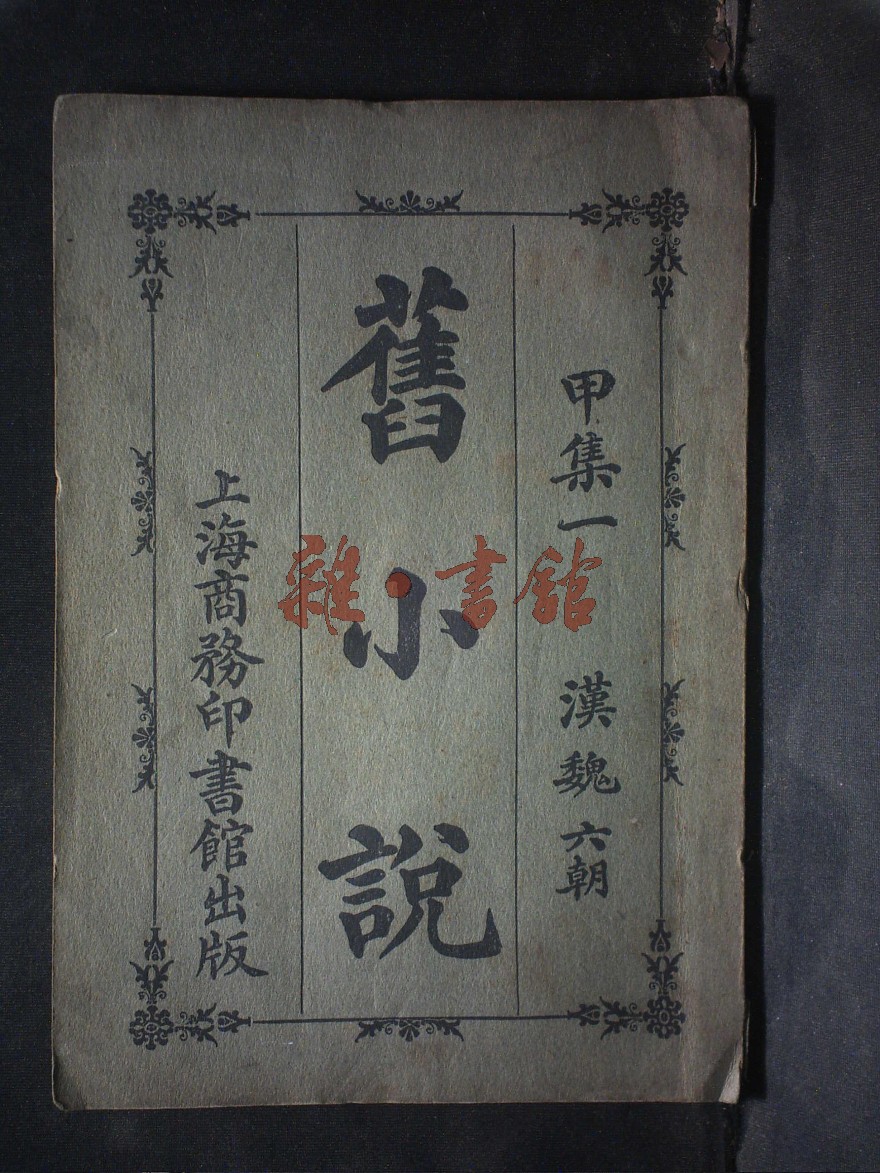 甲集一 漢魏六朝
舊小說
上海商務印書館出版
雜·書館